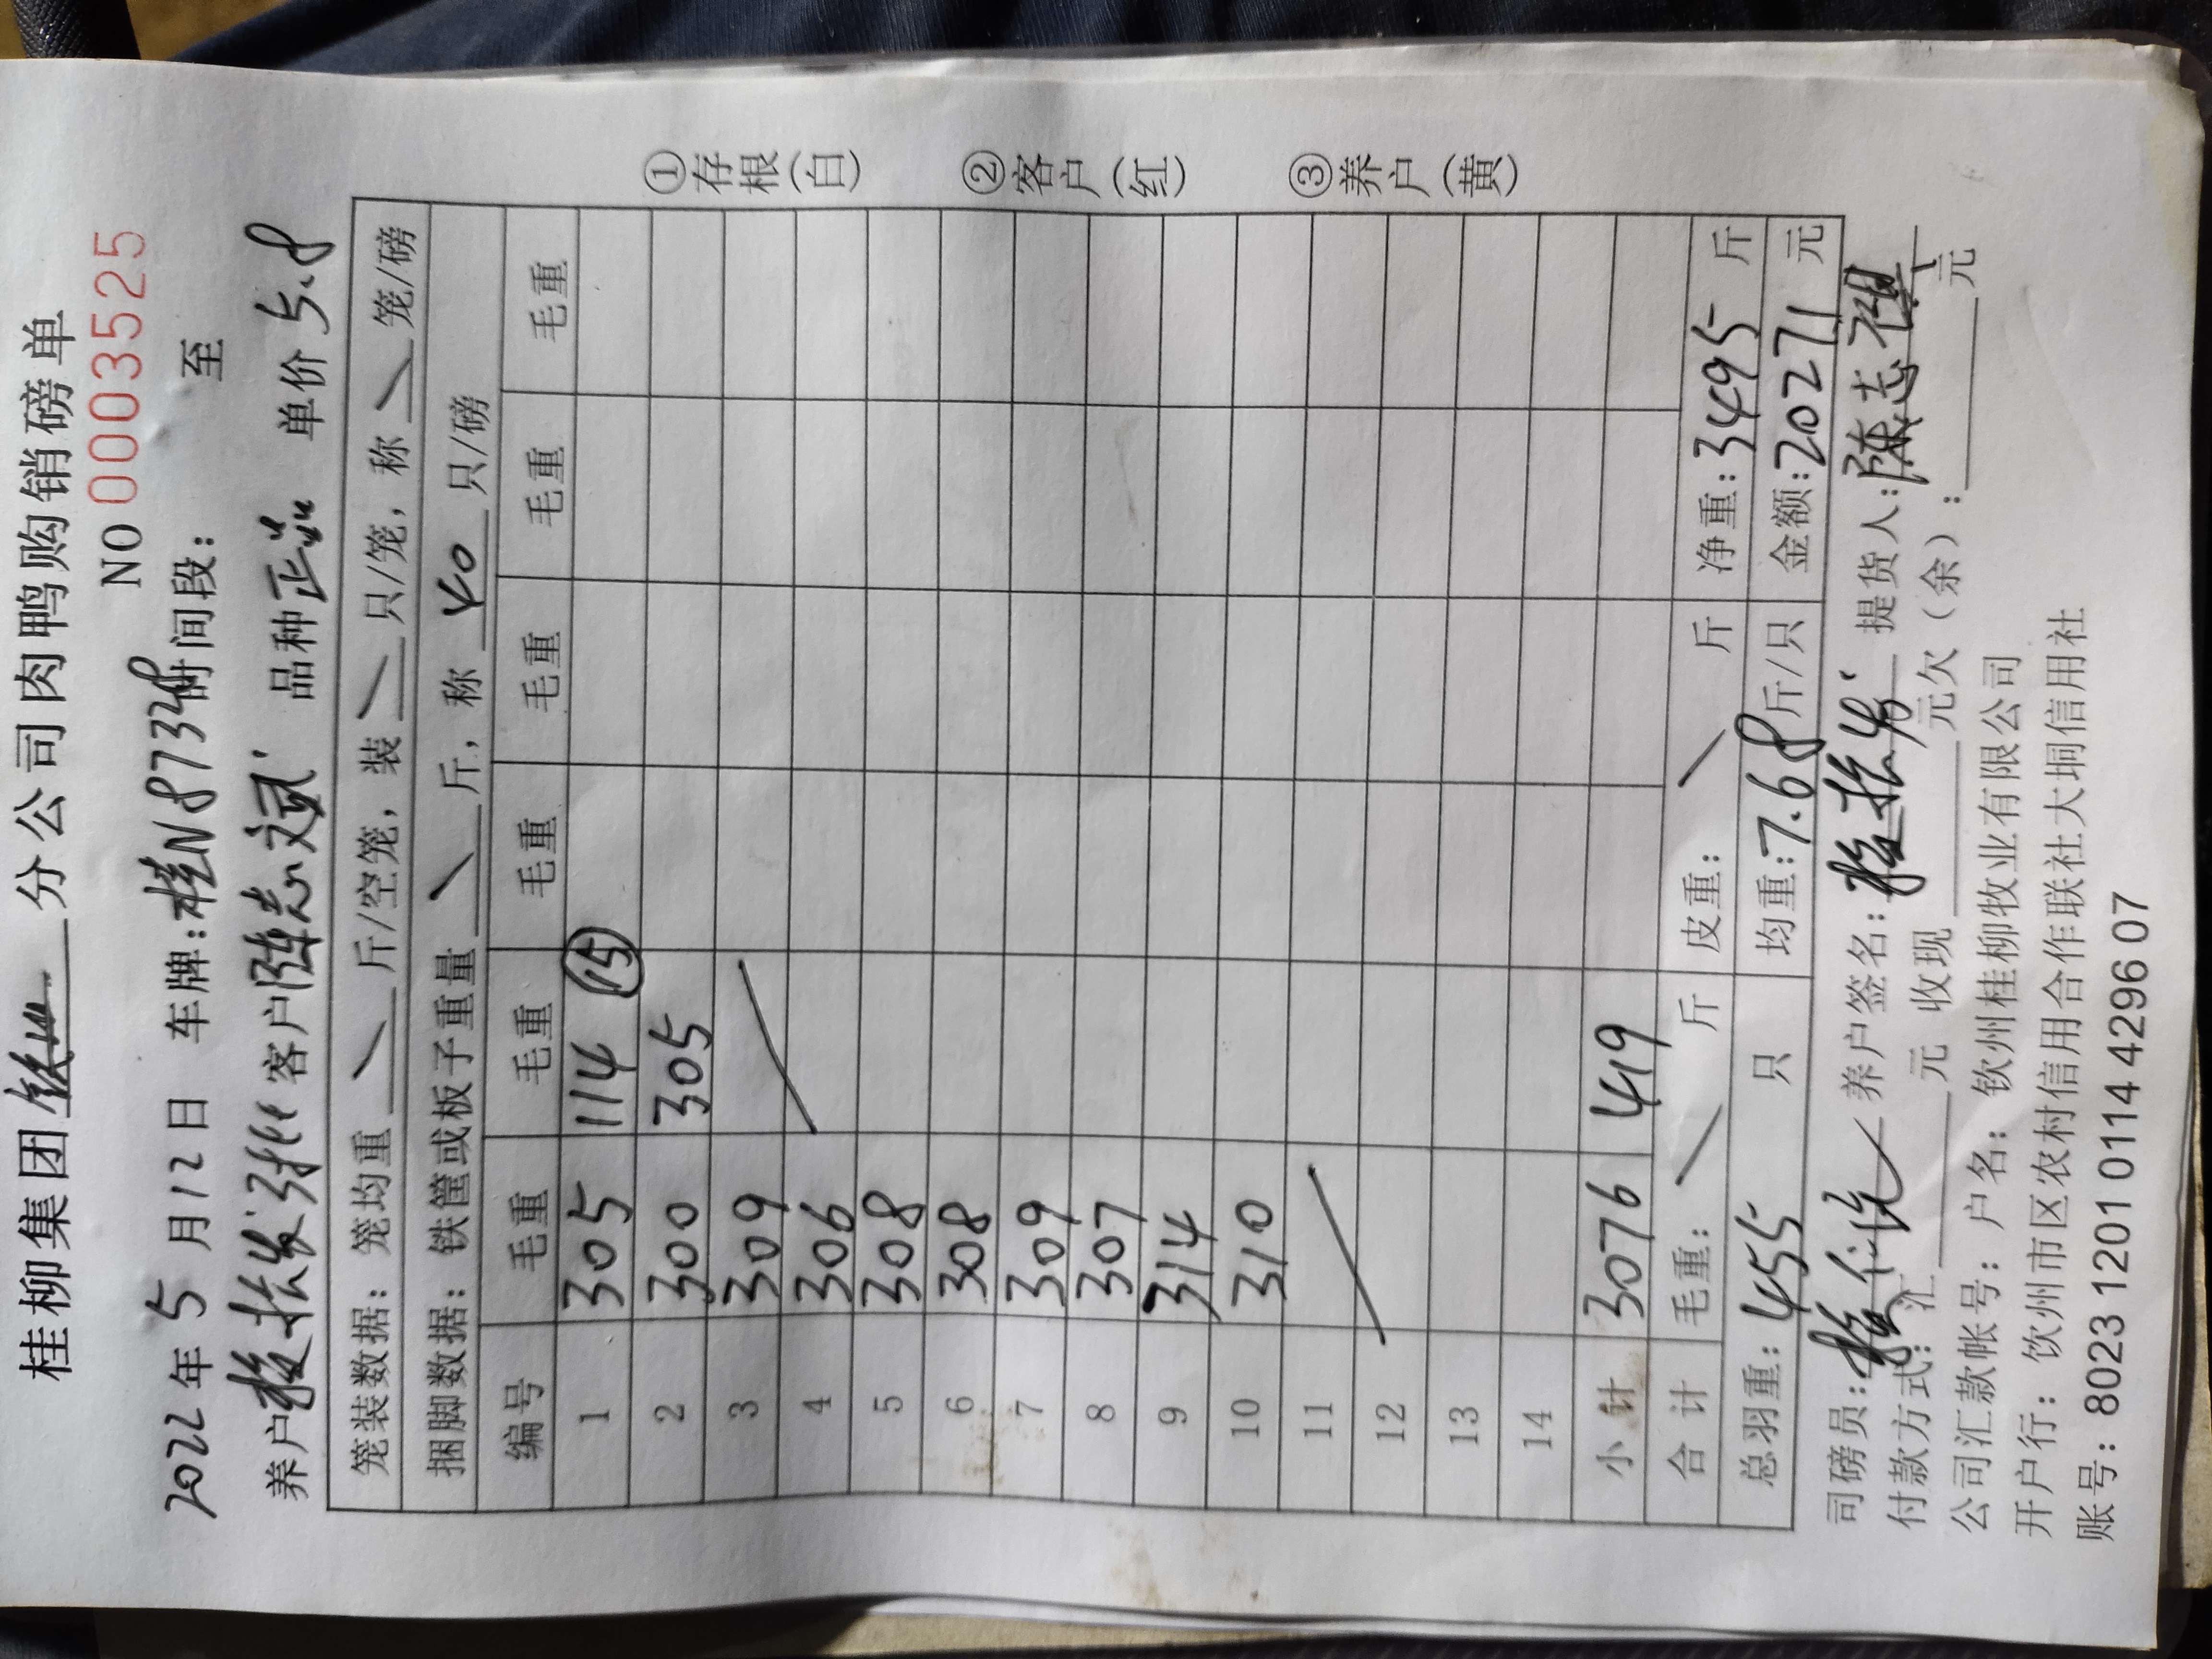 桂柳集团 分公司肉鸭购销磅单
NO 0003525
2022年5月12日 车牌:桂N87348时间段: 至
养户 客户陈志斌 品种正品 单价5.8
笼装数据: 笼均重 \ 斤/空笼, 装 \ 只/笼, 称 \ 笼/磅
捆脚数据: 铁筐或板子重量 \ 斤, 称 40 只/磅
编号 毛重 毛重 毛重 毛重 毛重 毛重
1 305 114 (15)
2 300 305
3 309
4 306
5 308
6 308
7 309
8 307
9 314
10 310
11
12
13
14
小计 3076 419
合计 毛重: \ 斤 皮重: \ 斤 净重:3495 斤
总羽重:455 只 均重:7.68斤/只 金额:20271 元
司磅员: 养户签名: 提货人:陈志
付款方式:汇 元 收现 元欠(余): 元
公司汇款帐号: 户名: 钦州桂柳牧业有限公司
开户行: 钦州市区农村信用合作联社大垌信用社
账号: 8023 1201 0114 4296 07
①存根(白)
②客户(红)
③养户(黄)